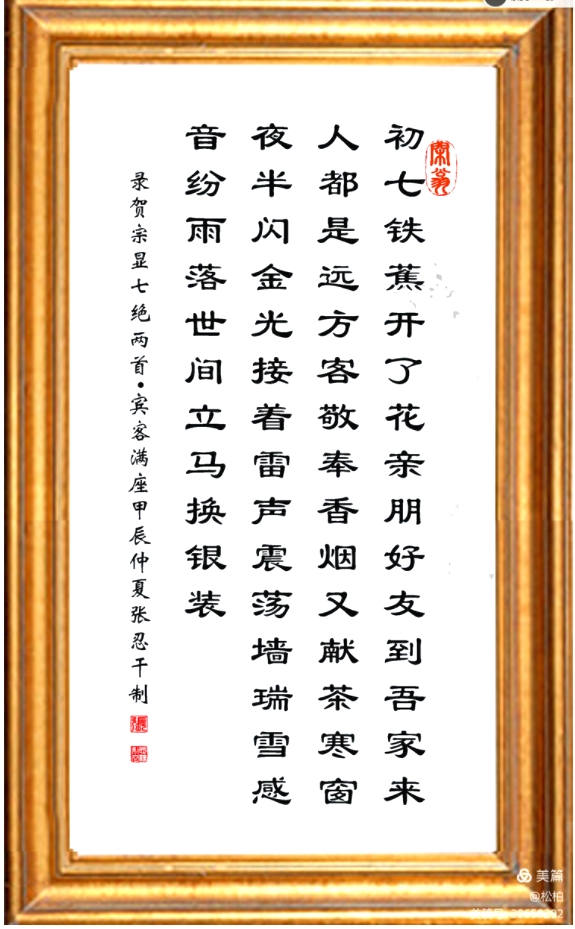 初七铁蕉开了花亲朋好友到吾家来
人都是远方客敬奉香烟又献茶寒窗
夜半闪金光接着雷声震荡墙瑞雪感
音纷雨落世间立马换银装
录贺宗显七绝两首·宾客满座甲辰仲夏张忍干制
美篇
@松柏